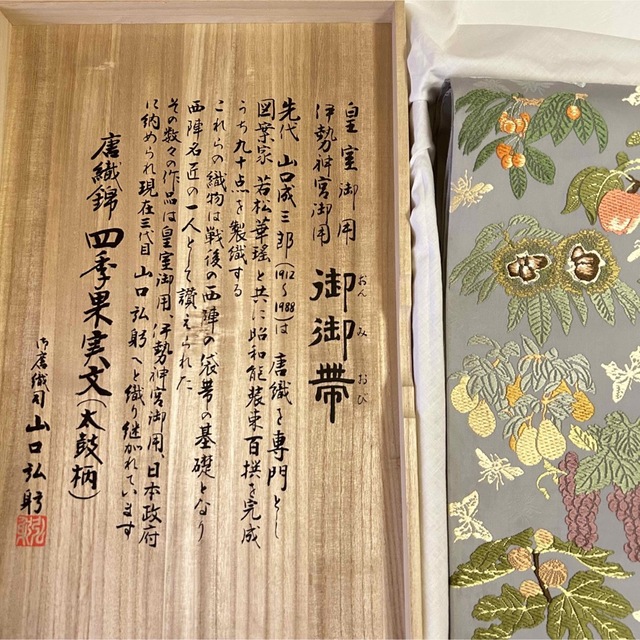 皇室御用
伊勢神宮御用
御御帯
おんみおび
先代 山口成三郎(1912~1988)は 唐織を専門とし
図案家 若松華瑶と共に昭和能装束百撰を完成
うち九十点を製織する
これらの織物は戦後の西陣の袋帯の基礎となり
西陣名匠の一人として讃えられた
その数々の作品は皇室御用、伊勢神宮御用、日本政府
に納められ現在三代目 山口弘躬へと織り継がれています
唐織錦 四季果実文(太鼓柄)
御唐織司 山口弘躬